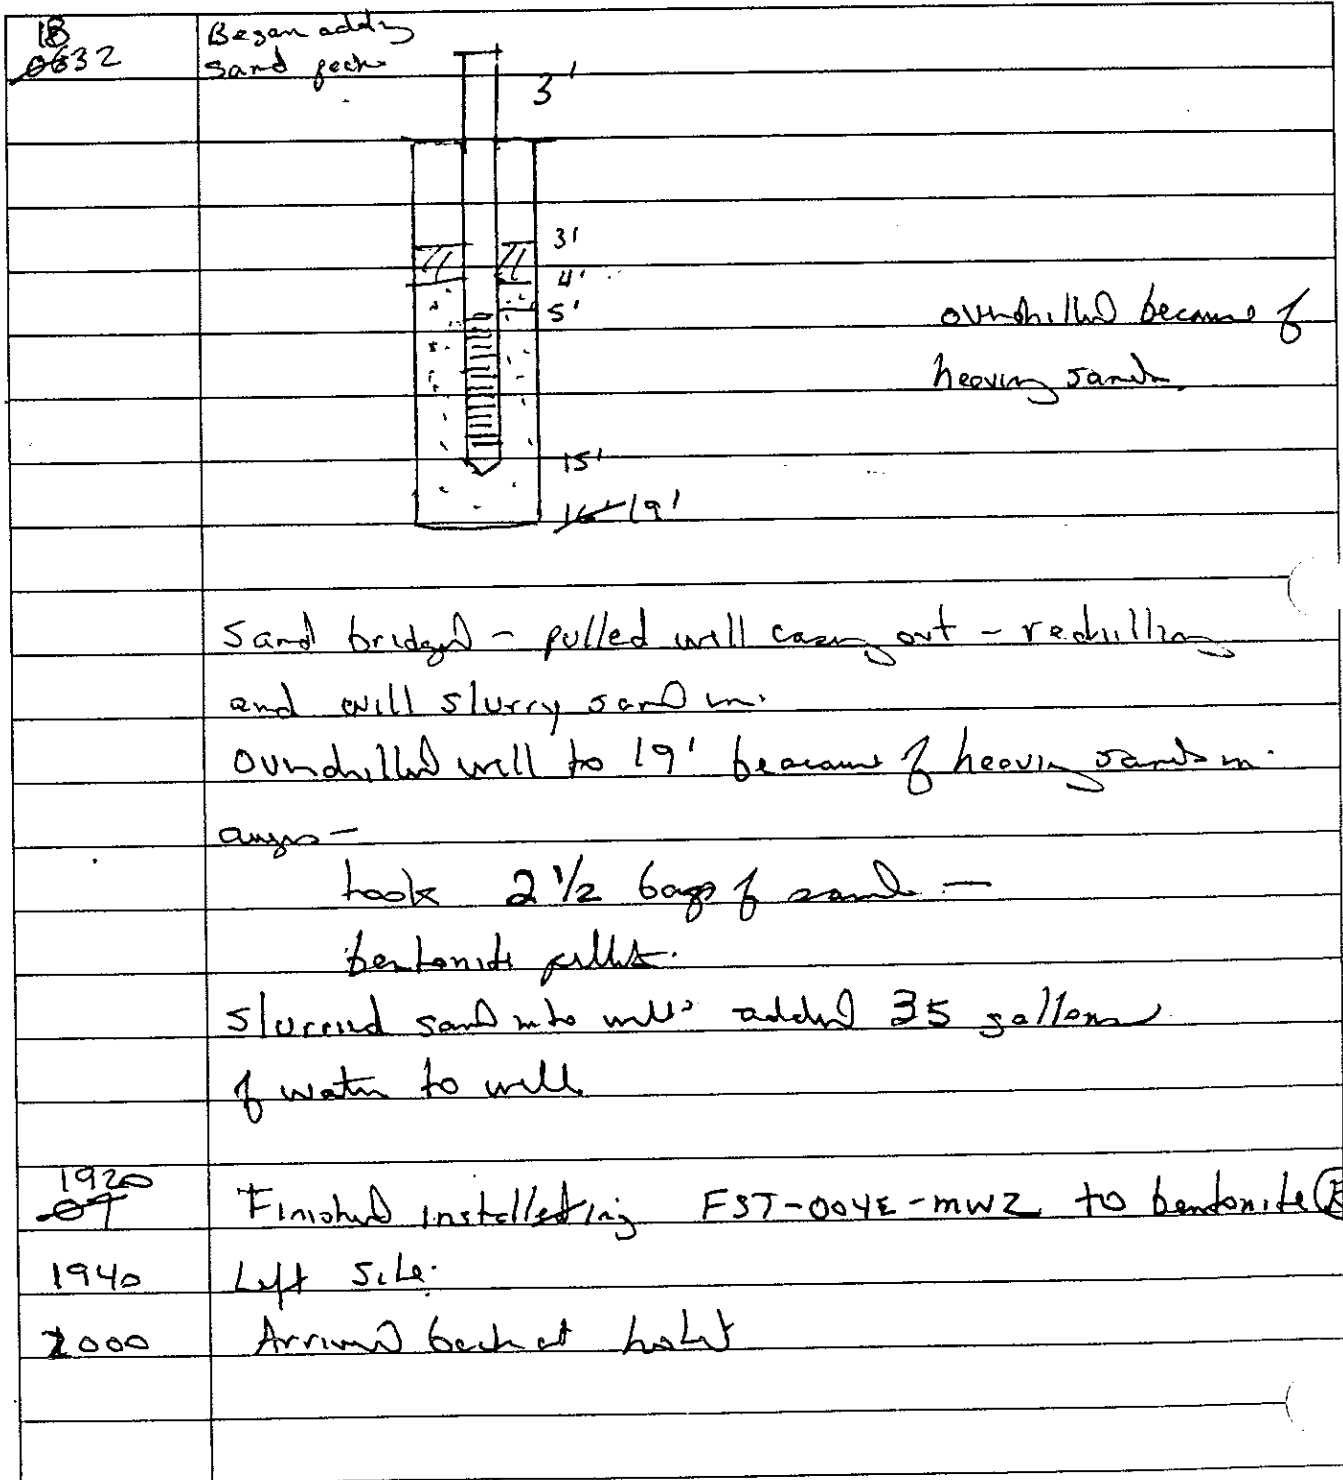 18
0632
Began adding
sand pack
3'
3'
4'
5'
overdrilled because of
heaving sands
15'
16' 19'
Sand bridged - pulled well casing out - redrilling
and will slurry sand in.
Overdrilled well to 19' because of heaving sands in
augers -
took 2 1/2 bags of sand -
bentonite pellets.
Slurried sand into well added 35 gallons
of water to well
1920
07
Finished installeting FST-004E-MW2 to bentonite
1940 Left Site.
2000 Arrived back at hotel